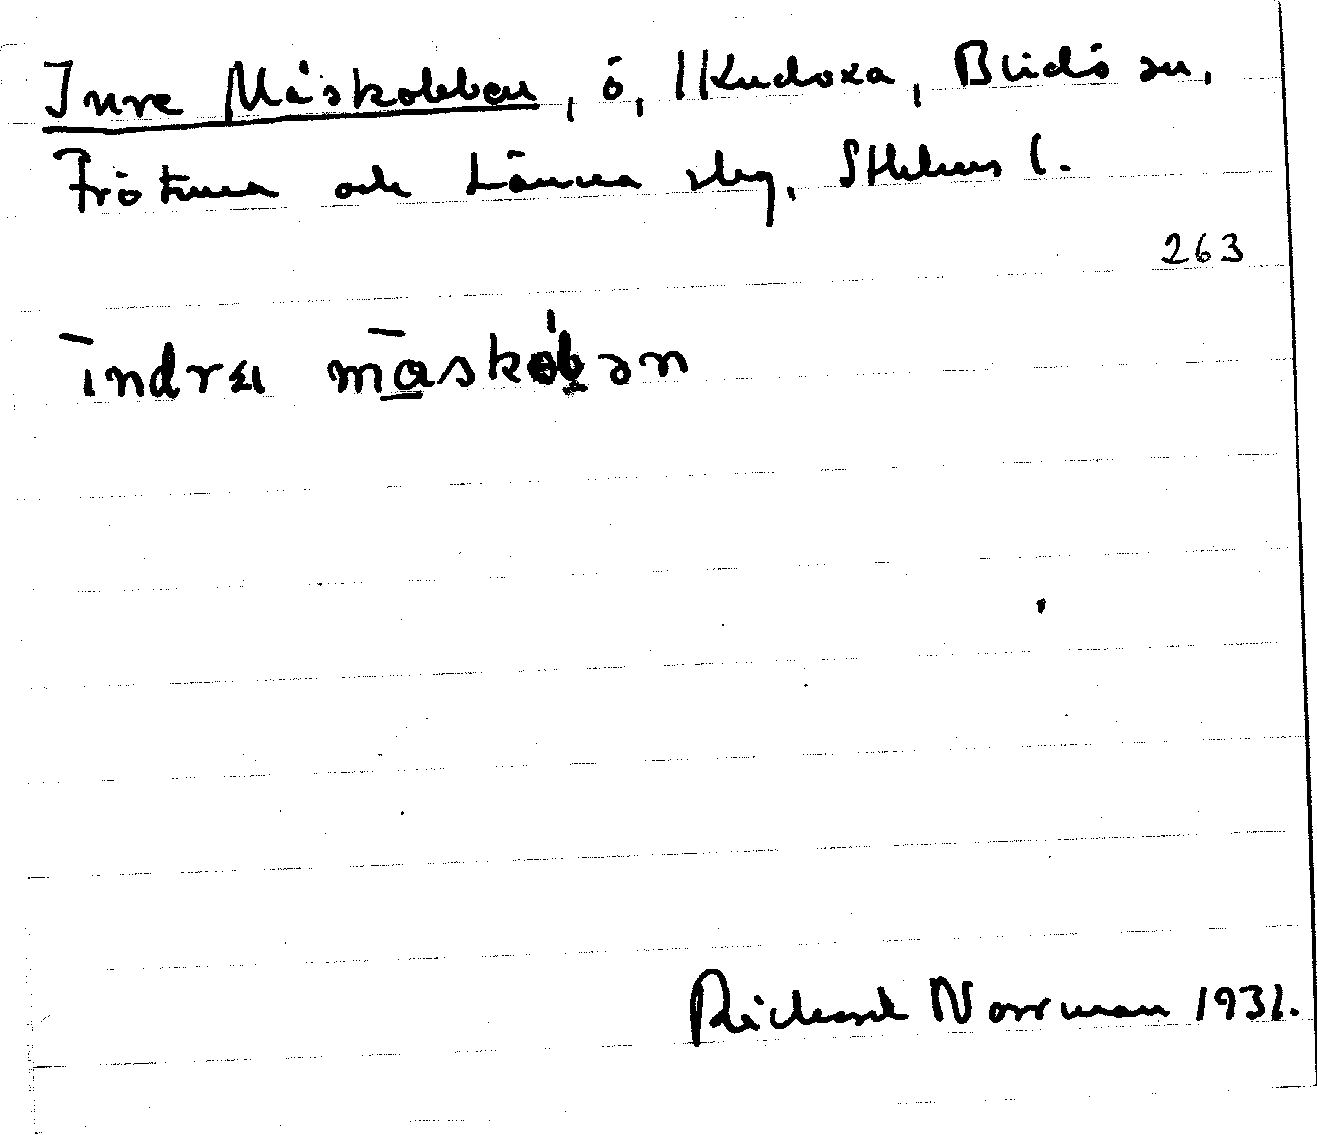 Inre Måskobben, ö, /Kudoxa, Blidö sn,
Frötuna och Länna slg, Sthlms l.
263
indra måskobən
Rickard Norrman 1931.